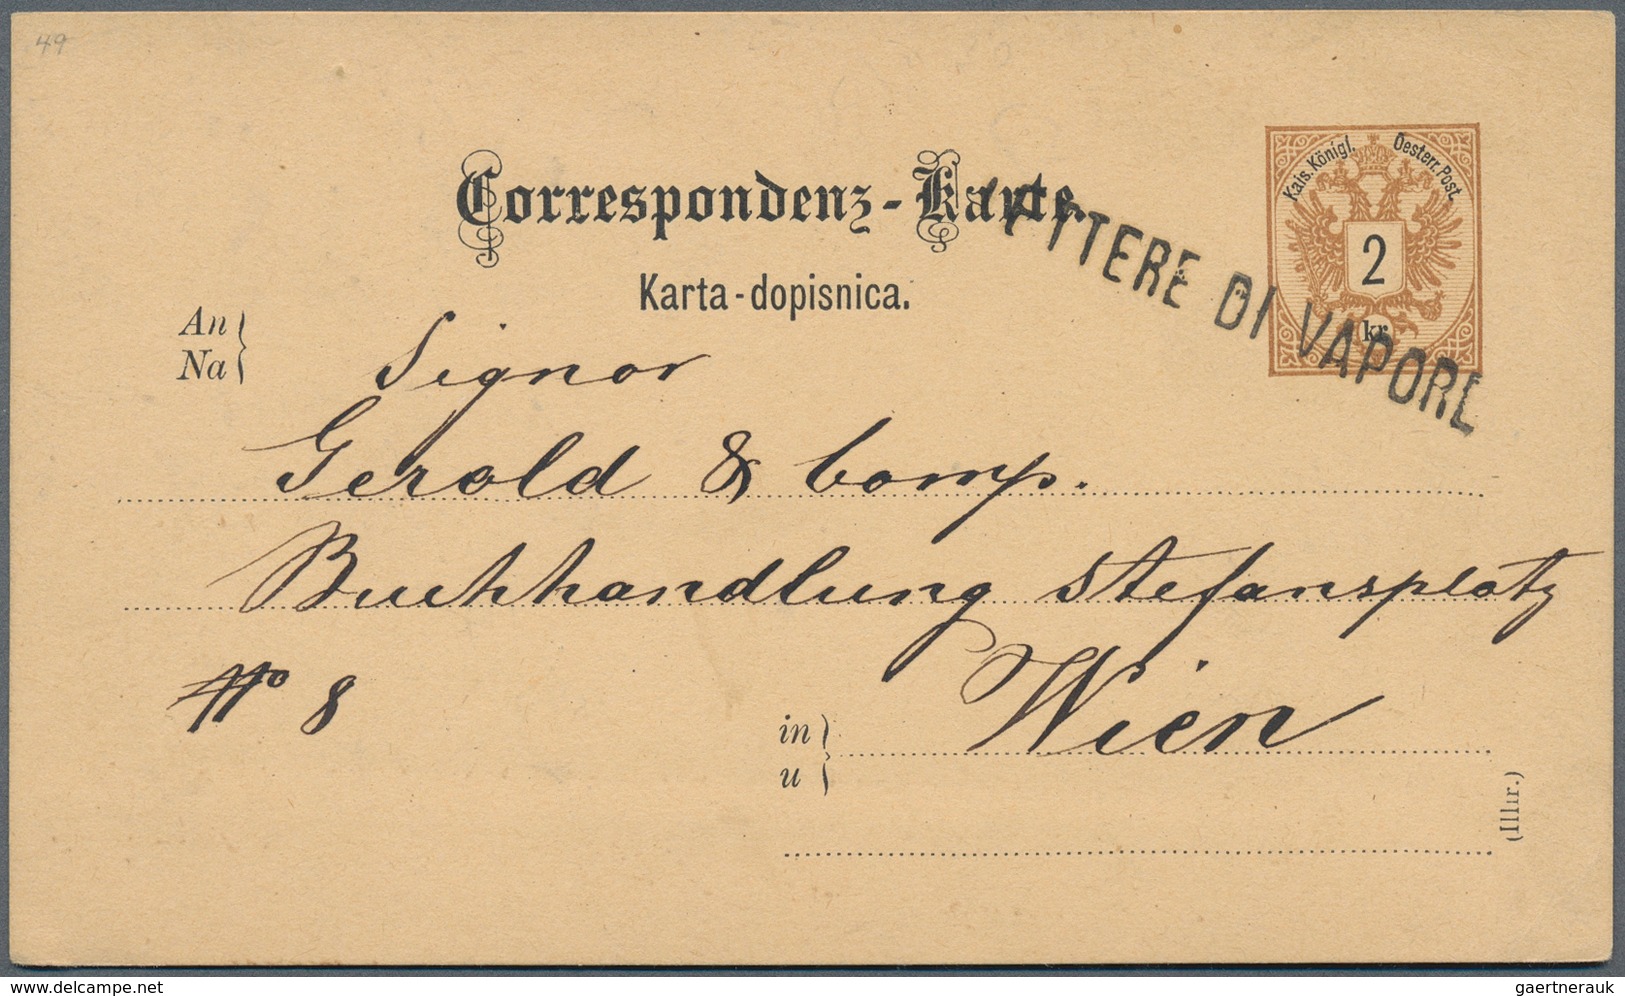 49
Kais. Königl. Oesterr. Post.
2
kr.
Correspondenz-Karte.
LETTERE DI VAPORE
Karta-dopisnica.
An
Na
Signor
Gerold & Comp.
Buchhandlung Stefansplatz
No 8
in
u
Wien
(Illir.)
delcampe.net
gaertnerauk